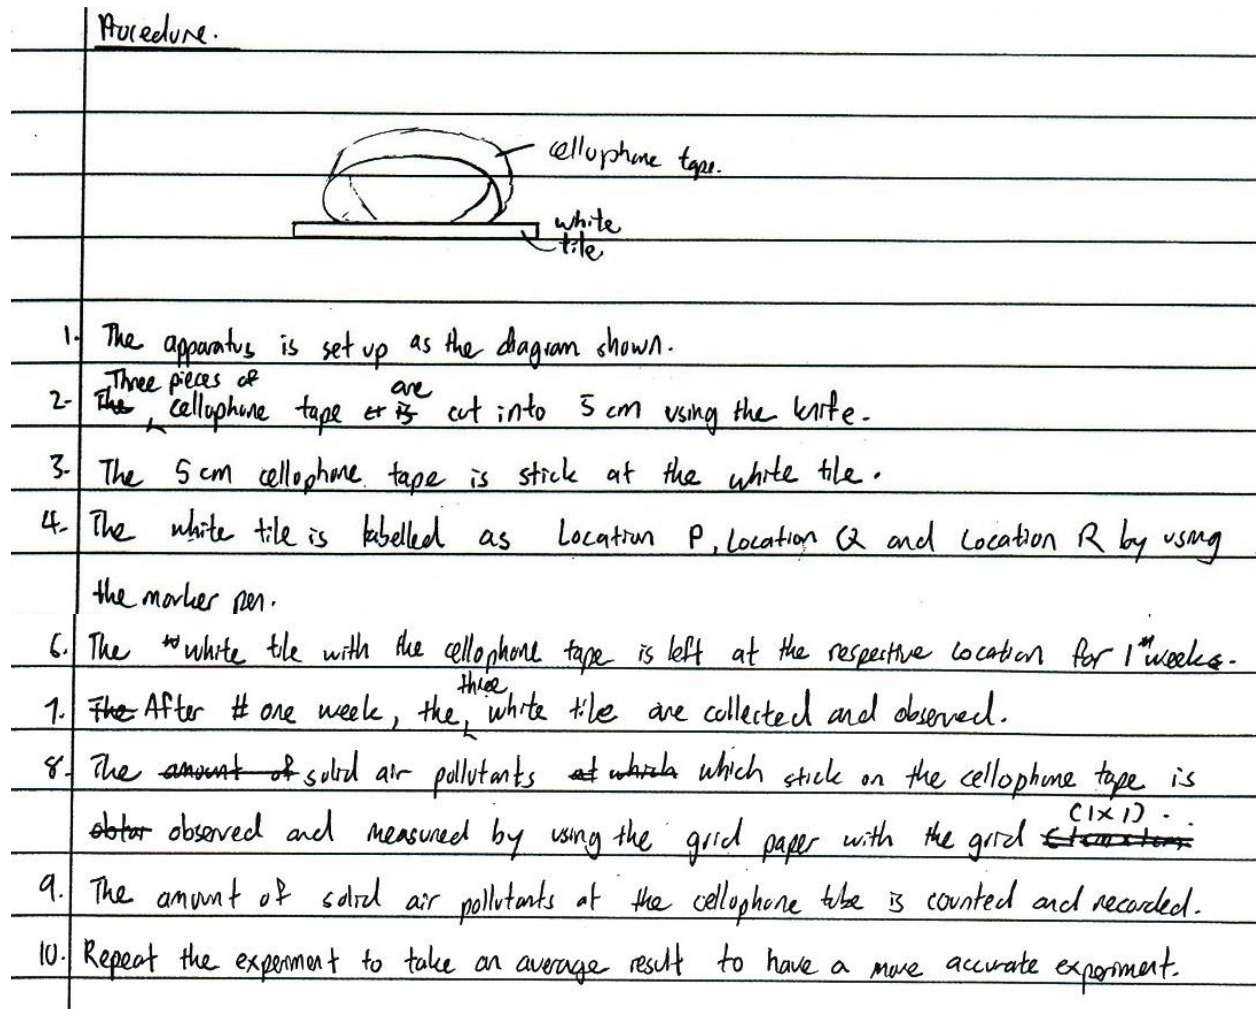 Procedure.
cellophane tape.
white
tile
1. The apparatus is set up as the diagram shown.
Three pieces of are
2- The cellophane tape is cut into 5 cm using the knife.
3- The 5 cm cellophane tape is stick at the white tile.
4- The white tile is labelled as Location P, Location Q and Location R by using
the marker pen.
6. The white tile with the cellophane tape is left at the respective location for 1 weeks.
three
7. The After one week, the white tile are collected and observed.
8. The amount of solid air pollutants at which which stick on the cellophane tape is
(1x1).
obtar observed and measured by using the grid paper with the grid
9. The amount of solid air pollutants at the cellophane tube is counted and recorded.
10. Repeat the experiment to take an average result to have a more accurate experiment.